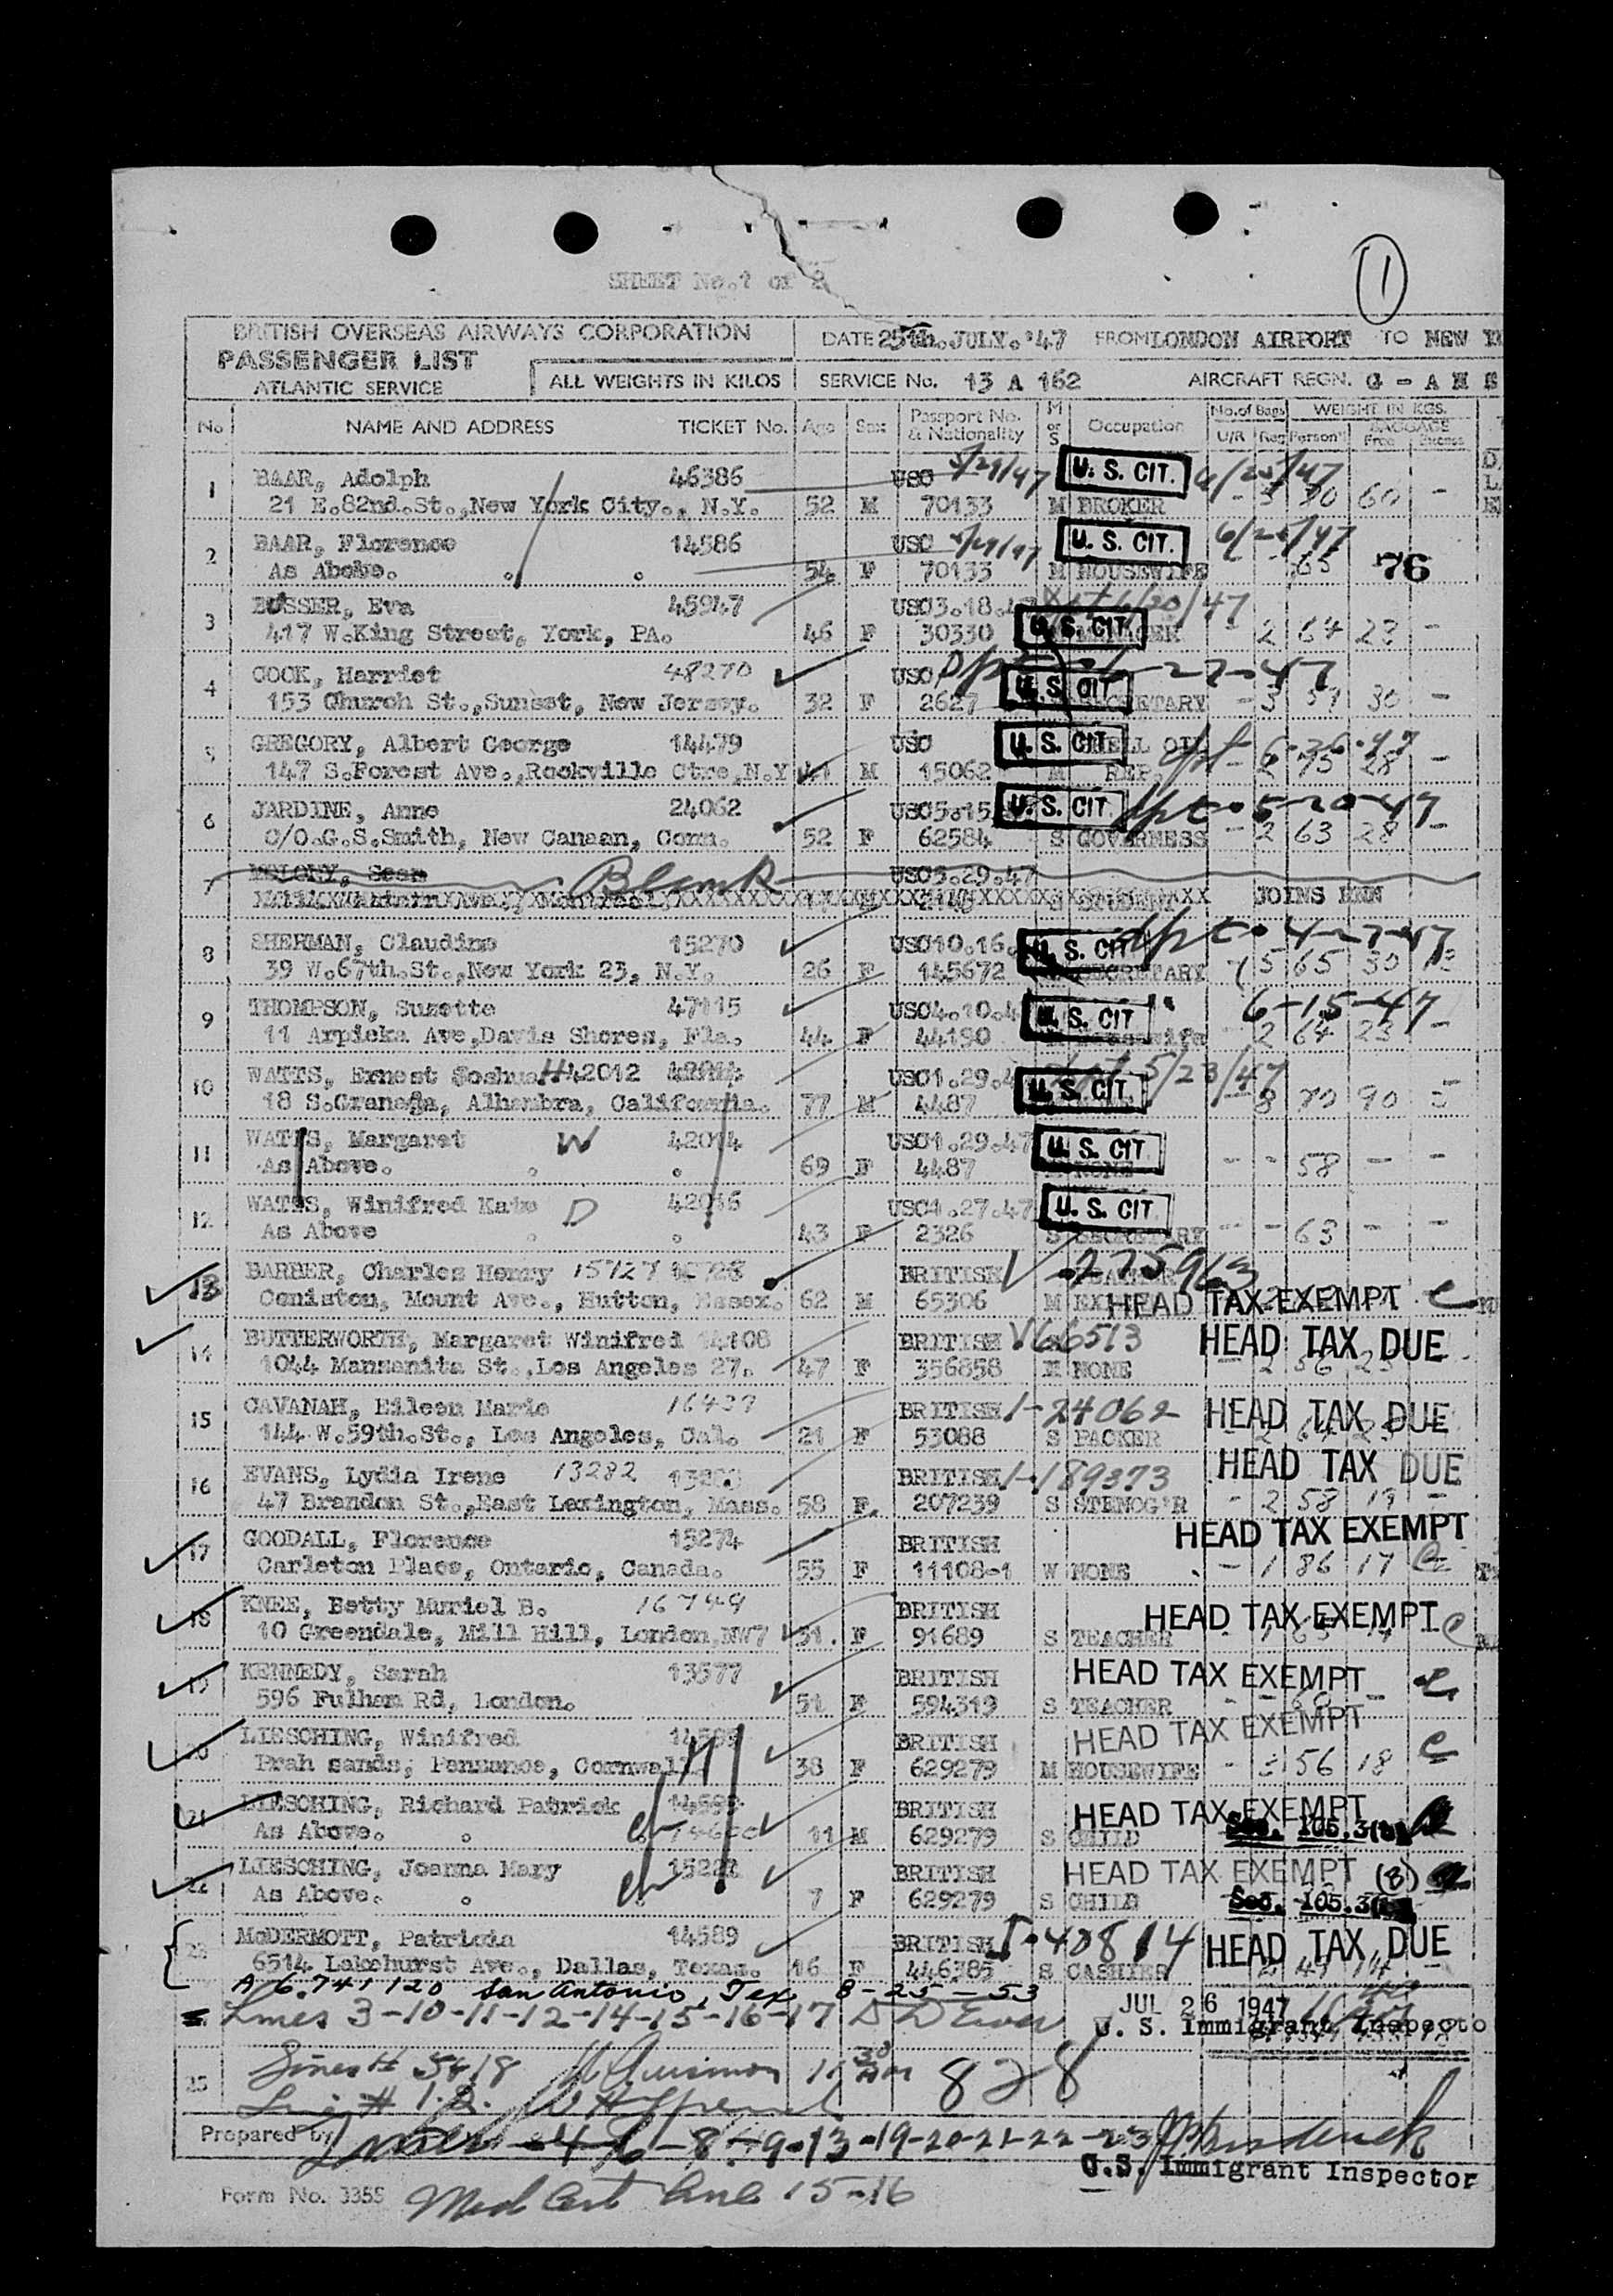 1
SHEET No.1 of 2
BRITISH OVERSEAS AIRWAYS CORPORATION
PASSENGER LIST
ATLANTIC SERVICE
ALL WEIGHTS IN KILOS
DATE 25th.JULY.'47 FROM LONDON AIRPORT TO NEW
SERVICE No. 13 A 162 AIRCRAFT REGN. G - A H S
No NAME AND ADDRESS TICKET No. Age Sex Passport No. & Nationality M or S Occupation No. of Bags U/R Reg WEIGHT IN KGS. Person'l BAGGAGE Free Excess
1 BAAR, Adolph 46386 USC 5/29/47 U. S. CIT. 6/25/47
21 E.82nd.St.,New York City., N.Y. 52 M 70133 M BROKER - 3 70 60 -
2 BAAR, Florence 14586 USC 5/29/47 U. S. CIT. 6/25/47
As Above. 54 F 70133 M HOUSEWIFE 65 76
3 BUSSER, Eva 45947 USC3.18.47 6/20/47
417 W.King Street, York, PA. 46 F 30330 U. S. CIT. - 2 64 23 -
4 COOK, Harriet 48270 USC
153 Church St.,Sunset, New Jersey. 32 F 2627 U. S. CIT. SECRETARY - 3 59 30 -
5 GREGORY, Albert George 14479 USC U. S. CIT. SHELL OIL 6.26.47
147 S.Forest Ave.,Rockville Ctre,N.Y 41 M 15062 M REP. 2 75 28 -
6 JARDINE, Anne 24062 USC5.15. U. S. CIT. dpt. 5-20-47
C/O.G.S.Smith, New Canaan, Conn. 52 F 62584 S GOVERNESS - 2 63 28 -
7 Blank USC5.29.47
JOINS
8 SHERMAN, Claudine 15270 USC10.16. U. S. CIT. dpt. 4-27-47
39 W.67th.St.,New York 23, N.Y. 26 F 145672 SECRETARY 5 65 30
9 THOMPSON, Suzette 47115 USC4.10.4 U. S. CIT. " 6-15-47
11 Arpieka Ave,Davis Shores, Fla. 44 F 44190 Housewife - 2 64 23 -
10 WATTS, Ernest Joshua H 42012 USC1.29.4 5/23/47
18 S.Granada, Alhambra, California. 77 M 4487 U. S. CIT. 8 70 90
11 WATTS, Margaret W 42014 USC1.29.47 U. S. CIT.
As Above. 69 F 4487 NONE - - 58 - -
12 WATTS, Winifred Kate D 42016 USC1.27.47 U. S. CIT.
As Above 43 F 2326 S SECRETARY - - 63 - -
13 BARBER, Charles Henry 15727 BRITISH 275963
Coniston, Mount Ave., Hutton, Essex. 62 M 65306 M HEAD TAX EXEMPT
14 BUTTERWORTH, Margaret Winifred 14108 BRITISH V66513 HEAD TAX DUE
1044 Manzanita St.,Los Angeles 27. 47 F 356858 M NONE
15 CAVANAH, Eileen Marie 16437 BRITISH 1-24062 HEAD TAX DUE
144 W.59th.St., Los Angeles, Cal. 21 F 53088 S PACKER
16 EVANS, Lydia Irene 13282 BRITISH 1-189373 HEAD TAX DUE
47 Brandon St.,East Lexington, Mass. 58 F. 207239 S STENOG'R - 2 58 19 -
17 GOODALL, Florence 15274 BRITISH HEAD TAX EXEMPT
Carleton Place, Ontario, Canada. 55 F 11108-1 W NONE - 1 86 17
18 KNEE, Betty Muriel B. 16749 BRITISH HEAD TAX EXEMPT
10 Greendale, Mill Hill, London,NW7 31. F 91689 S TEACHER
19 KENNEDY, Sarah 13577 BRITISH HEAD TAX EXEMPT
596 Fulham Rd, London. 51 F 594319 S TEACHER
20 LIESCHING, Winifred BRITISH HEAD TAX EXEMPT
Prah sands, Penzance, Cornwall. 38 F 629279 M HOUSEWIFE - 56 18
21 LIESCHING, Richard Patrick BRITISH HEAD TAX EXEMPT
As Above. 11 M 629279 S CHILD Sec. 105.3
22 LIESCHING, Joanna Mary BRITISH HEAD TAX EXEMPT (B)
As Above. 7 F 629279 S CHILD Sec. 105.3
23 McDERMOTT, Patricia 14589 BRITISH HEAD TAX DUE
6514 Lakehurst Ave., Dallas, Texas. 16 F 446385 S CASHIER
A 6.741 120 San Antonio, Tex 8-25-53
Lines 3-10-11-12-14-15-16-17 JUL 26 1947
U. S. Immigrant Inspecto
25 Lines # 5 & 18 11 30 AM 828
Line # 1.2.
Prepared by Lines -4-6-8-9-13-19-20-21-22-23
U.S. Immigrant Inspector
Form No. 335S Med Cert Line 15-16